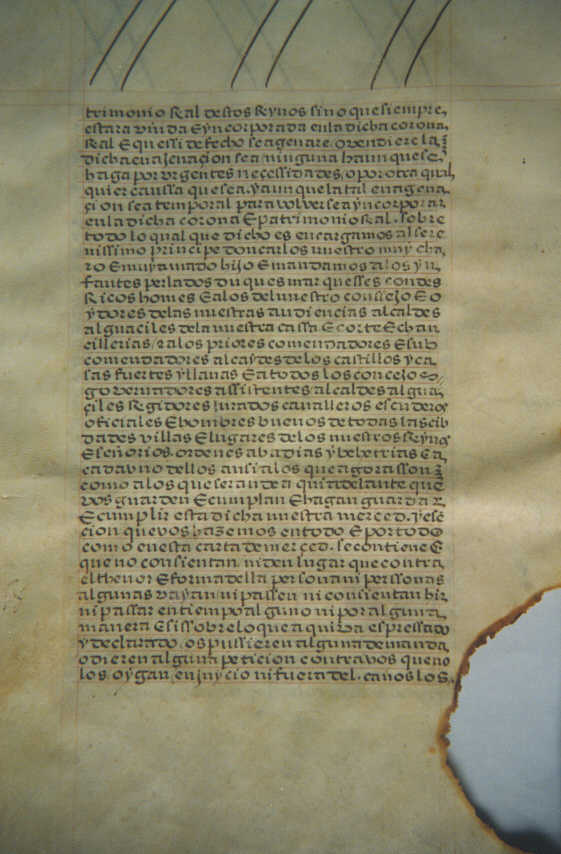 trimonio Real destos Reynos sino que siempre,
estara vinida E yncorporada en la dicha corona,
Real E que si de fecho se agenare, o vendiere la
dicha enajenaçion sea ninguna haun que se,
haga por vrgentes neçessidades, o por otra qual
quier caussa que sea. y aun que la tal enagena,
çion sea temporal para volver se a yncorporar,
en la dicha corona E patrimonio Real. sobre
todo lo qual que dicho es encargamos al sere
nissimo principe don carlos nuestro muy cha,
ro E muy amado hijo E mandamos a los yn,
fantes perlados duques marquesses condes
Ricos homes E a los del nuestro consejo E o
ydores de las nuestras audiencias alcaldes
alguaciles de la nuestra cassa E corte E chan
cillerias, r a los priores comendadores E sub
comendadores alcaydes de los castillos y ca,
sas fuertes y llanas E a todos los concejos
governadores assistentes, alcaldes algua,
çiles Regidores Jurados cavalleros escuderos
ofiçiales E hombres buenos de todas las cib
dades villas E lugares de los nuestros Reynos
E señorios. ordenes abadias y behetrias E a,
cada vno dellos ansi a los que agora sson
como a los que seran de a qui adelante que
vos guarden E cumplan E hagan guardar
E cumplir esta dicha nuestra merced. y ese
cion que vos hazemos en todo E por todo
como en esta carta de merced. se contiene E
que no consientan. ni den lugar que contra
el thenor E forma della persona ni perssonas
algunas vayan ni passen ni consientan hir
ni passar en tiempo alguno ni por alguna,
manera E si ssobre lo que a qui va espressado
y declarado, os pussieren alguna demanda,
o dieren alguna peticion contra vos que no
los oygan, en juycio ni fuera del. ca nos los